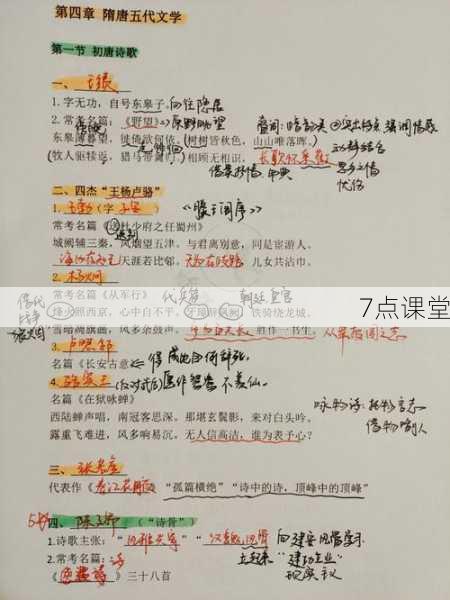 第四章 隋唐五代文学
第一节 初唐诗歌
一、王绩
1.字无功，自号东皋子 向往隐居
2.常考名篇：《野望》
东皋薄暮望，徙倚欲何依。(树树皆秋色，山山唯落晖。)
(牧人驱犊返，猎马带禽归。)相顾无相识，长歌怀采薇
借景抒情
二、四杰“王杨卢骆”
1.王勃(字子安) 《滕王阁序》
常考名篇《送杜少府之任蜀州》
城阙辅三秦，风烟望五津。与君离别意，同是宦游人。
海内存知己 天涯若比邻。无为在歧路 儿女共沾巾。
2.杨炯
常考名篇《从军行》
烽火照西京，心中自不平。牙璋辞凤阙，铁骑绕龙城。
雪暗凋旗画，风多杂鼓声。宁为百夫长，胜作一书生。
7点课堂
3.卢照邻
名篇《长安古意》 得成比目何辞死，
4.骆宾王 愿作鸳鸯不羡仙。
名篇《在狱咏蝉》
西陆蝉声唱，南冠客思深。那堪玄鬓影，来对白头吟。
露重飞难进，风多响易沉。无人信高洁，谁为表予心？
咏物诗：托物言志
借物喻人
三、张若虚
代表作《春江花月夜》“孤篇横绝”“诗中的诗，顶峰中的顶峰”
四、陈子昂 (“诗骨”)
1.诗歌主张：“风雅兴寄”“汉魏风骨”
2.常考名篇：
《感遇诗》三十八首